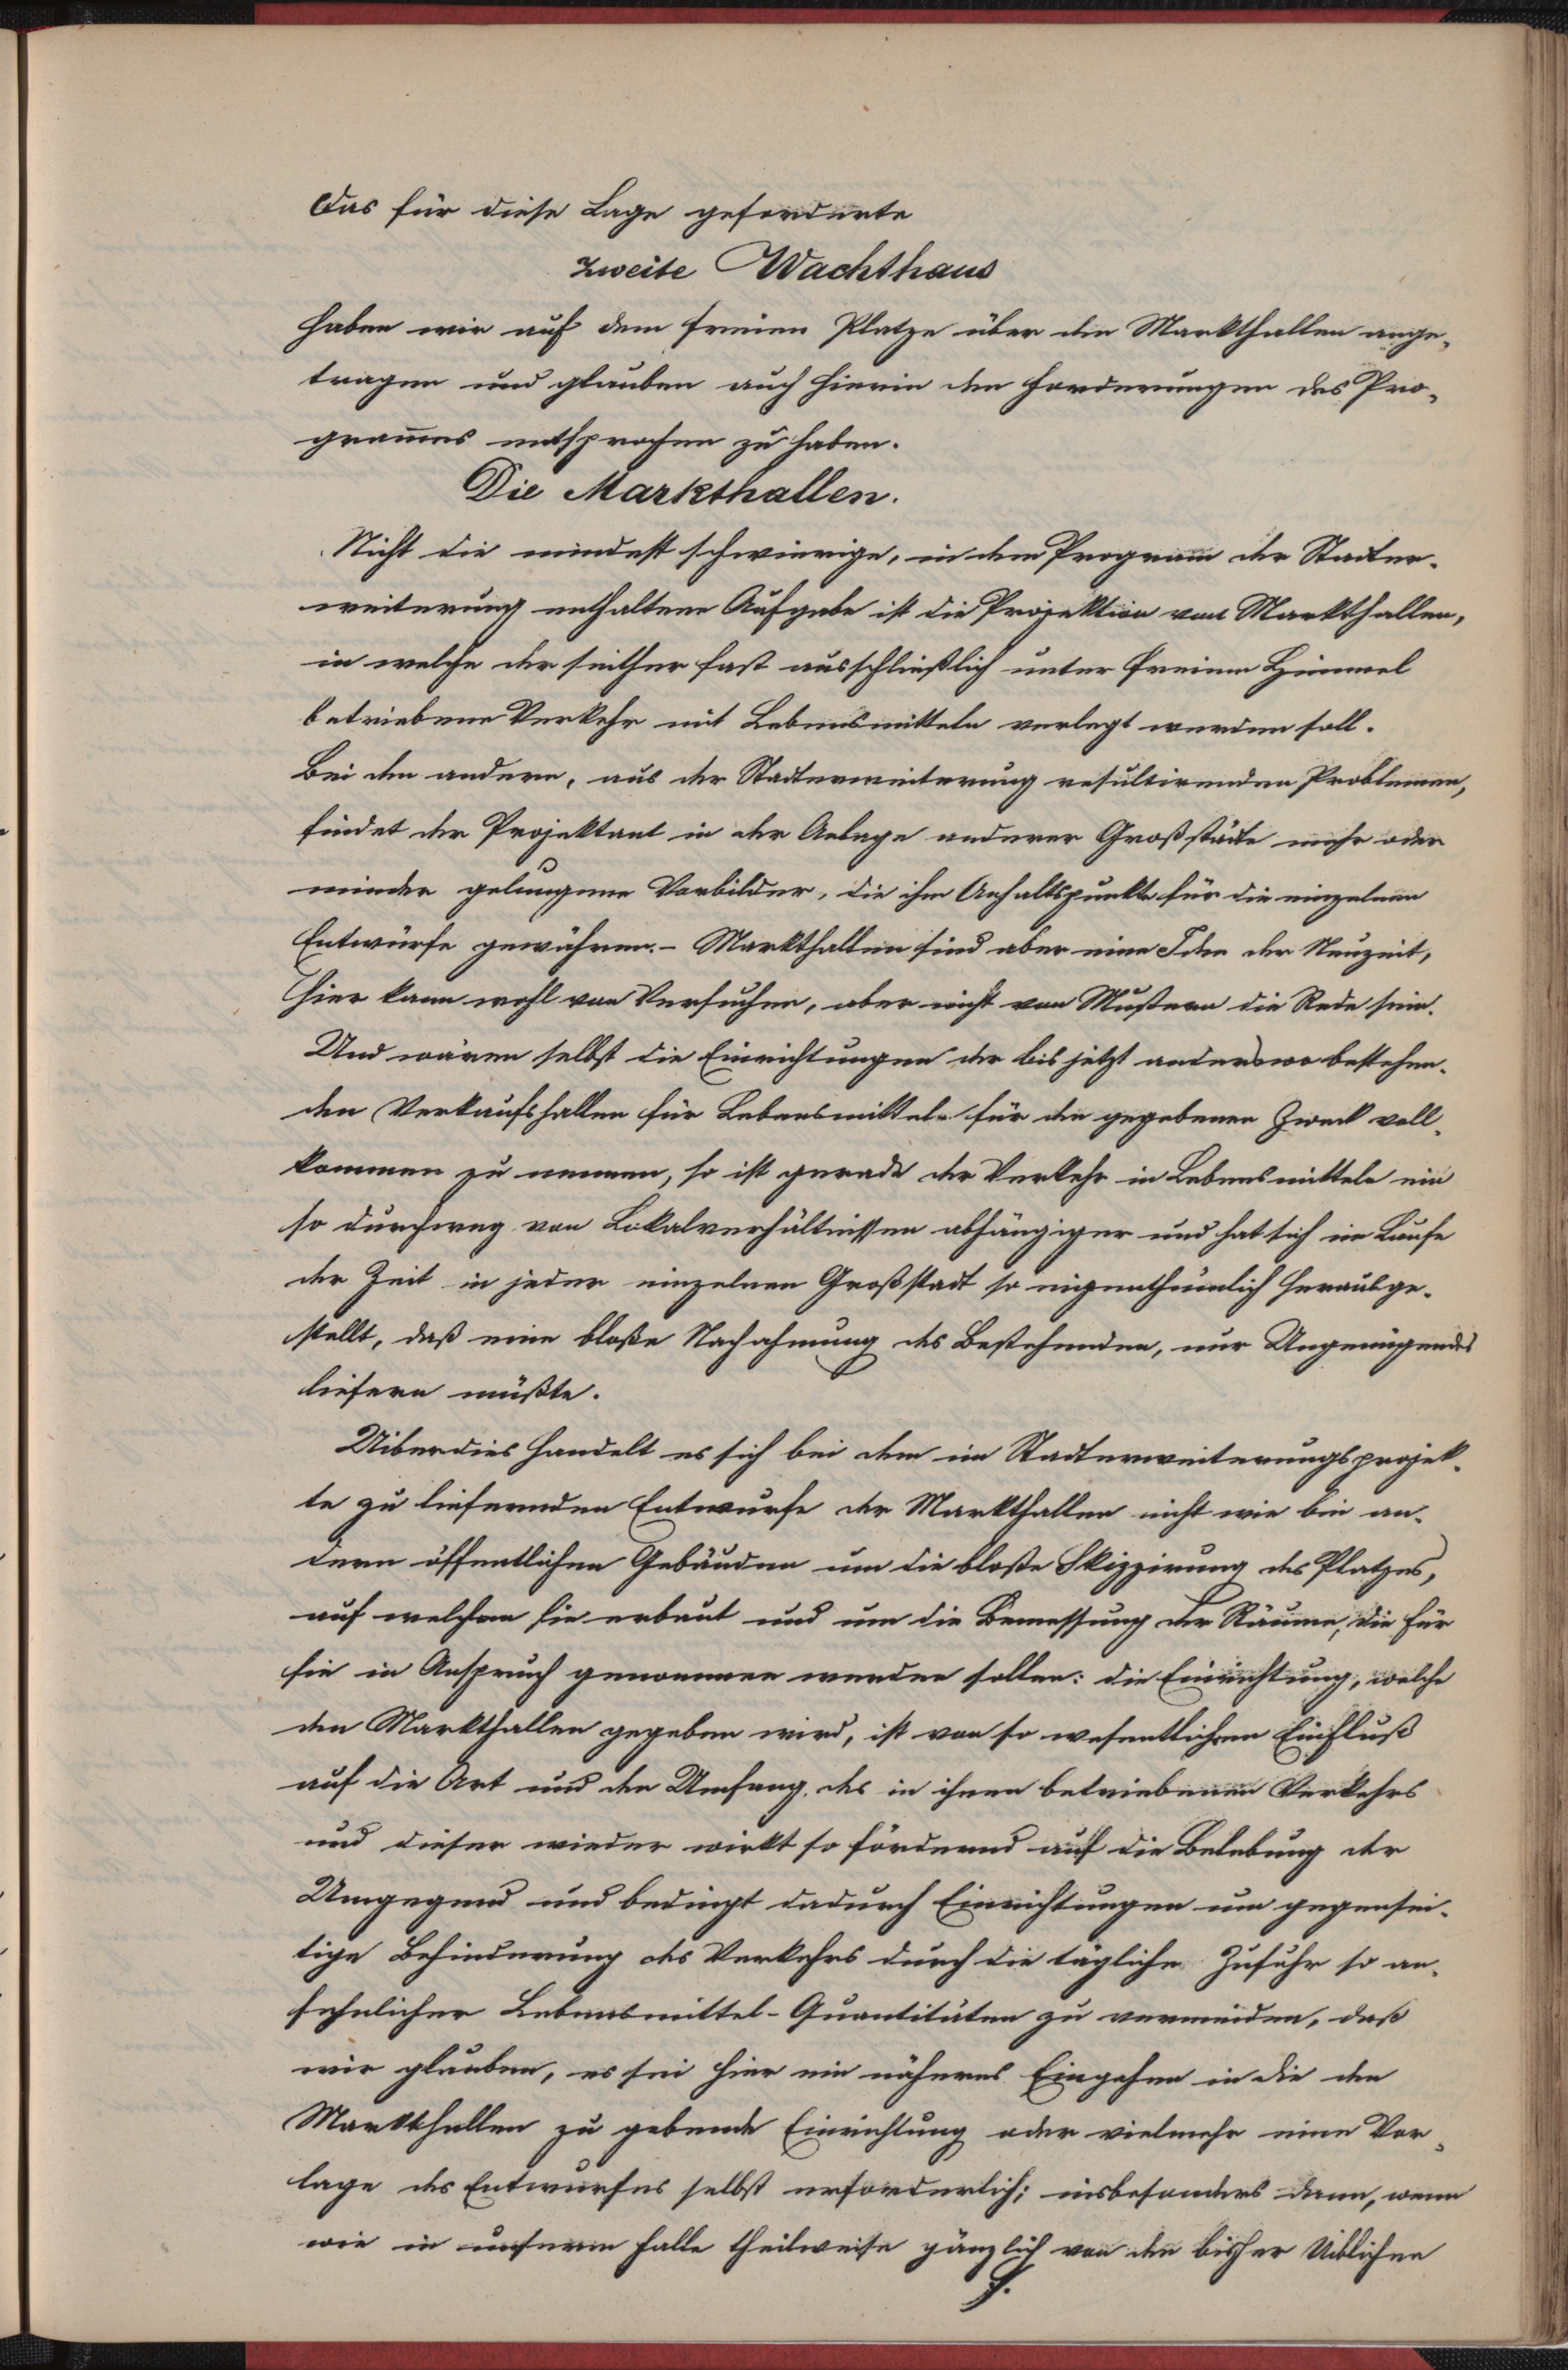 Das für diese Lage geforderte
zweite Wachthaus
haben wir auf dem freien Platze über den Markthallen ange-
tragen und glauben auch hierin den Forderungen des Pro-
gram̅es entsprochen zu haben.
Die Markthallen.
Nicht die mindest schwierige, in dem Program̅ der Stadter-
weiterung enthaltene Aufgabe ist die Projektion von Markthallen,
in welche der seither fast ausschließlich unter freiem Himmel
betriebene Verkehr mit Lebensmitteln verlegt werden soll.
Bei den andern, aus der Stadterweiterung resultirenden Problemen,
findet der Projektant in der Anlage anderer Großstädte mehr oder
minder gelungene Vorbilder, die ihm Anhaltspunkte für die einzelnen
Entwürfe gewähren. – Markthallen sind aber eine Idee der Neuzeit,
hier kann wohl von Versuchen, aber nicht von Mustern die Rede sein.
Und wären selbst die Einrichtungen der bis jetzt anderswo bestehen-
den Verkaufshallen für Lebensmitteln für den gegebenen Zweck voll-
kommen zu nennen, so ist gerade der Verkehr in Lebensmitteln ein
so durchweg von Lokalverhältnissen abhängiger und hat sich im Laufe
der Zeit in jeder einzelnen Großstadt so eigenthümlich herausge-
stellt, daß eine bloße Nachahmung des Bestehenden, nur Ungenügendes
liefern müßte.
Uiberdies handelt es sich bei dem im Stadterweiterungsprojek-
te zu liefernden Entwurfe der Markthallen nicht wie bei an-
dern öffentlichen Gebäuden um die bloße Skizzirung des Platzes,
auf welchem sie erbaut und um die Bemessung der Räume, die für
sie in Anspruch genommen werden sollen: die Einrichtung, welche
den Markthallen gegeben wird, ist von so wesentlichem Einfluß
auf die Art und den Umfang des in ihnen betriebenen Verkehrs
und dieser wieder wirkt so fördernd auf die Belebung der
Umgegend und bedingt dadurch Einrichtungen um gegensei-
tige Behinderung des Verkehrs durch die tägliche Zufuhr so an-
sehnlicher Lebensmittel-Quantitäten zu vermeiden, daß
wir glauben, es sei hier ein näheres Eingehen in die den
Markthallen zu gebende Einrichtung oder vielmehr eine Vor-
lage des Entwurfes selbst erforderlich; insbesonders dann, wenn
wie in unserem Falle theilweise gänzlich von den bisher Uiblichen